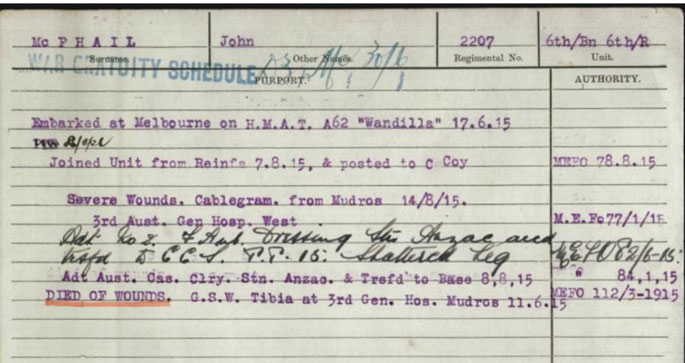 Mc PHAIL John 2207 6th/Bn 6th/R
Surname. Other Names. Regimental No. Unit.
WAR GRATUITY SCHEDULE 30/6
PURPORT. AUTHORITY.
Embarked at Melbourne on H.M.A.T. A62 "Wandilla" 17.6.15
Joined Unit from Reinfs 7.8.15, & posted to C Coy MEFO 78.8.15
Severe Wounds. Cablegram. from Mudros 14/8/15.
3rd Aust. Gen Hosp. West M.E.Fo77/1/15
No 2 Dressing Stn Anzac and
trsfd to C C S. Shattered Leg MEFO 82/6-15:
Adt Aust. Cas. Clry. Stn. Anzac. & Trefd to Base 8,8,15 " 84,1,15
DIED OF WOUNDS. G.S.W. Tibia at 3rd Gen. Hos. Mudros 11.6.15 MEFO 112/3-1915